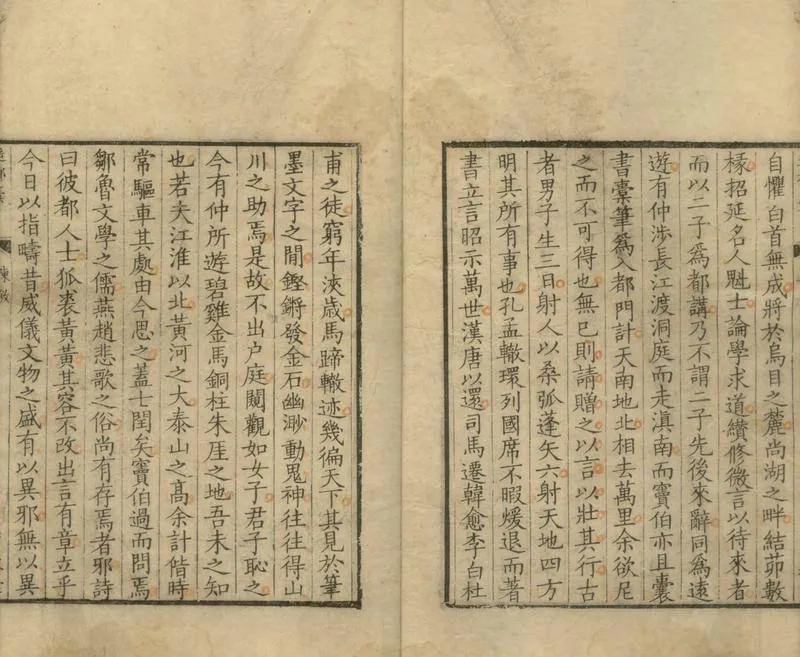 自懼白首無成將於烏目之麓尚湖之畔結茆數
椽招延名人魁士論學求道纉修微言以待來者
而以二子爲都講乃不謂二子先後來辭同爲逺
遊有仲涉長江渡洞庭而走滇南而竇伯亦且囊
書槖筆爲入都門計天南地北相去萬里余欲尼
之而不可得也無已則請贈之以言以壯其行古
者男子生三日射人以桑弧蓬矢六射天地四方
明其所有事也孔孟轍環列國席不暇煖退而著
書立言昭示萬世漢唐以還司馬遷韓愈李白杜
甫之徒窮年浹歳馬蹄轍迹幾徧天下其見於筆
墨文字之閒鏗鏘發金石幽渺動鬼神往往得山
川之助焉是故不出户庭闚觀如女子君子恥之
今有仲所遊碧雞金馬銅柱朱厓之地吾未之知
也若夫江淮以北黃河之大泰山之髙余計偕時
常驅車其處由今思之蓋七閏矣竇伯過而問焉
鄒魯文學之儒燕趙悲歌之俗尚有存焉者邪詩
曰彼都人士狐裘黃黃其容不改出言有章立乎
今日以指疇昔威儀文物之盛有以異邪無以異